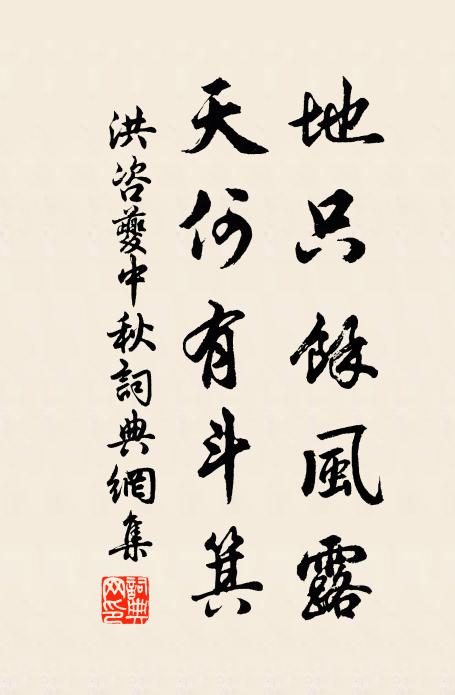 地只餘風露
天何有斗箕
洪咨夔中秋詞典網集
詞典網印